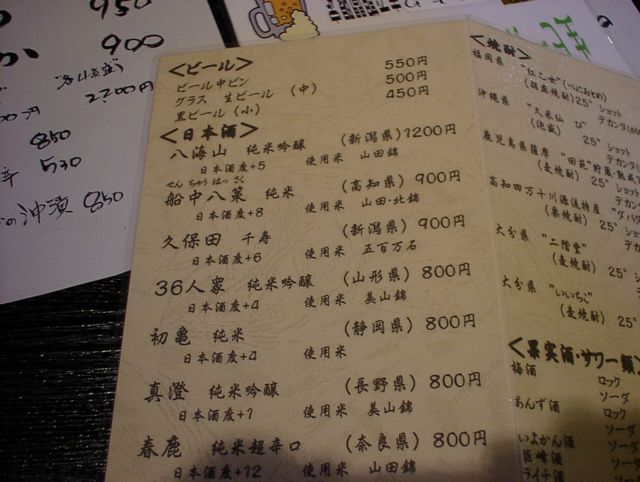 950
900
2200円
850
530
の沖漬 850
<ビール>
ビール中ビン 550円
グラス 生ビール (中) 500円
黒ビール(小) 450円
<日本酒>
八海山 純米吟醸 (新潟県)1200円
日本酒度+5 使用米 山田錦
せん ちゅう はっ さく
船中八策 純米 (高知県)900円
日本酒度+8 使用米 山田・北錦
久保田 千寿 (新潟県)900円
日本酒度+6 使用米 五百万石
36人衆 純米吟醸 (山形県)800円
日本酒度+4 使用米 美山錦
初亀 純米 (静岡県)800円
日本酒度+4 使用米
真澄 純米吟醸 (長野県)800円
日本酒度+1 使用米 美山錦
春鹿 純米超辛口 (奈良県)800円
日本酒度+12 使用米 山田錦
<焼酎>
福岡県 "紅乙女"(べにおとめ)
(胡麻焼酎)25° ショット
デカンタ
沖縄県 "久米仙 び"
(泡盛) 25° ショット
デカンタ(
鹿児島県薩摩 "田苑"貯蔵・熟
(麦焼酎) 25° ショット
デカンタ
高知四万十川源流特産 "ダバ
(栗焼酎) 25° ショット
デカン
大分県 "二階堂"
(麦焼酎) 25° ショ
デカ
大分県 "いいちこ"
(麦焼酎) 25°
<果実酒・サワー類>
梅酒 ロック
ソーダ
あんず酒 ロック
ソーダ
いよかん酒 ソーダ
巨峰酒 ソー
ライチ酒